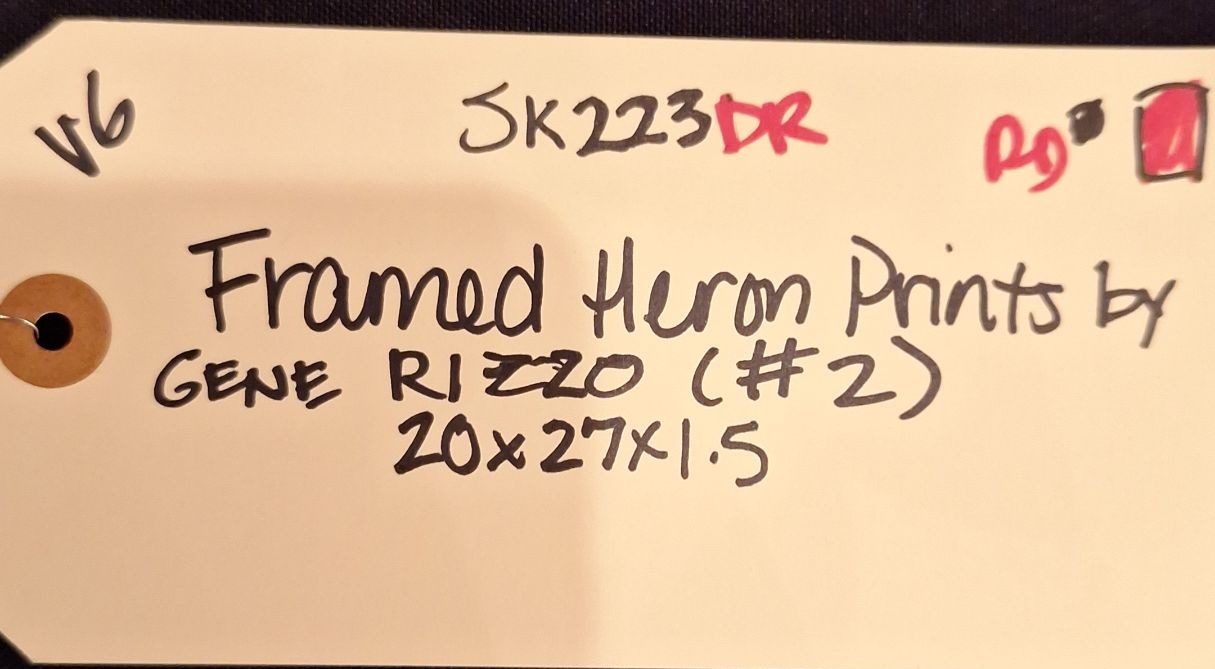 V6 SK223DR RD
Framed Heron Prints by
GENE RIZZO (#2)
20x27x1.5